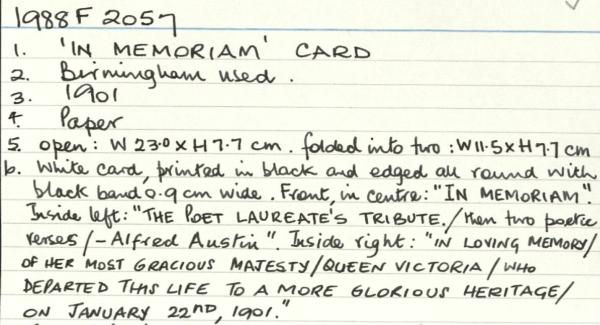 1988 F 2057
1. 'IN MEMORIAM' CARD
2. Birmingham used.
3. 1901
4. Paper
5. open: W 23.0 x H 7.7 cm. folded into two: W 11.5 x H 7.7 cm
6. White card, printed in black and edged all round with
black band 0.9 cm wide. Front, in centre: "IN MEMORIAM".
Inside left: "THE POET LAUREATE'S TRIBUTE./then two poetic
verses/-Alfred Austin". Inside right: "IN LOVING MEMORY/
OF HER MOST GRACIOUS MAJESTY/QUEEN VICTORIA/WHO
DEPARTED THIS LIFE TO A MORE GLORIOUS HERITAGE/
ON JANUARY 22ND, 1901."